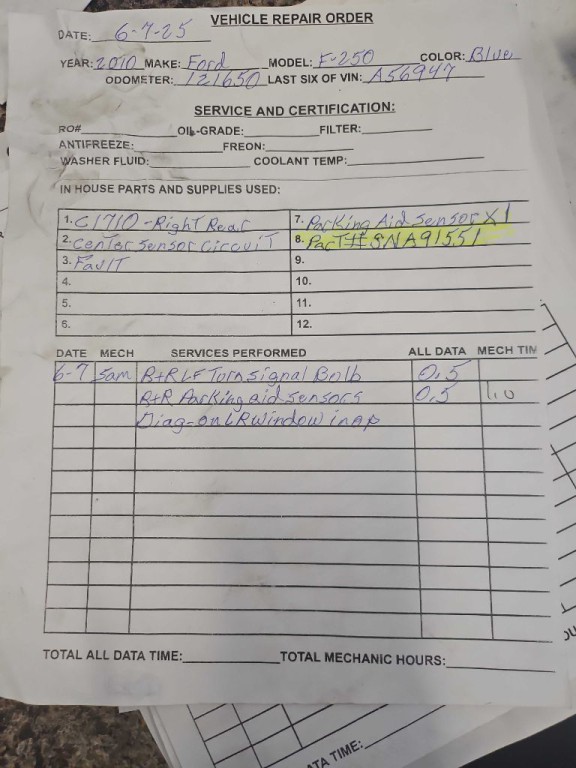 VEHICLE REPAIR ORDER
DATE: 6-7-25
YEAR: 2010 MAKE: Ford MODEL: F-250 COLOR: Blue
ODOMETER: 121650 LAST SIX OF VIN: A56947
SERVICE AND CERTIFICATION:
RO# OIL-GRADE: FILTER:
ANTIFREEZE: FREON:
WASHER FLUID: COOLANT TEMP:
IN HOUSE PARTS AND SUPPLIES USED:
1. C1710 - Right Rear 7. Parking Aid Sensor X1
2. Center Sensor Circuit 8. Part# SNA91551
3. Fault 9.
4. 10.
5. 11.
6. 12.
DATE MECH SERVICES PERFORMED ALL DATA MECH TIM
6-7 Sam R+R LF Turn signal Bulb 0.5
R+R Parking aid sensors 0.5 1.0
Diag-on LR window inop
TOTAL ALL DATA TIME: TOTAL MECHANIC HOURS:
ATA TIME: